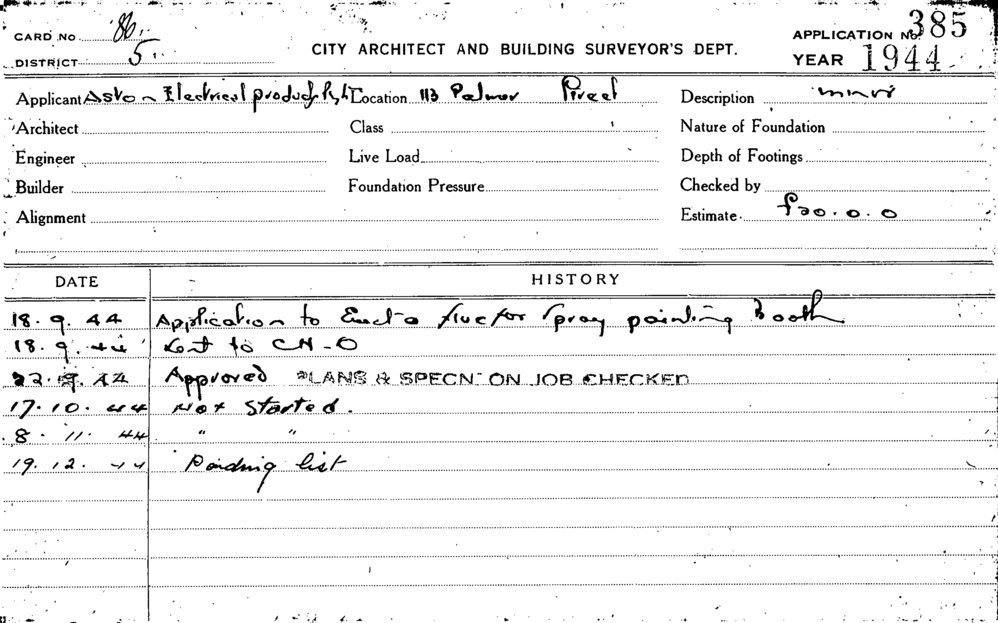 CARD No 86
APPLICATION No. 385
DISTRICT 5
CITY ARCHITECT AND BUILDING SURVEYOR'S DEPT.
YEAR 1944
Applicant Aston Electrical products Pty Location 113 Palmer Street Description
Architect Class Nature of Foundation
Engineer Live Load Depth of Footings
Builder Foundation Pressure Checked by
Alignment Estimate £20.0.0
DATE HISTORY
18.9.44 Application to Erect a flue for Spray painting Booth
18.9.44 Sent to C.H-O
22.9.44 Approved PLANS & SPECN. ON JOB CHECKED
17.10.44 Not Started.
8.11.44 " "
19.12.44 Pending list